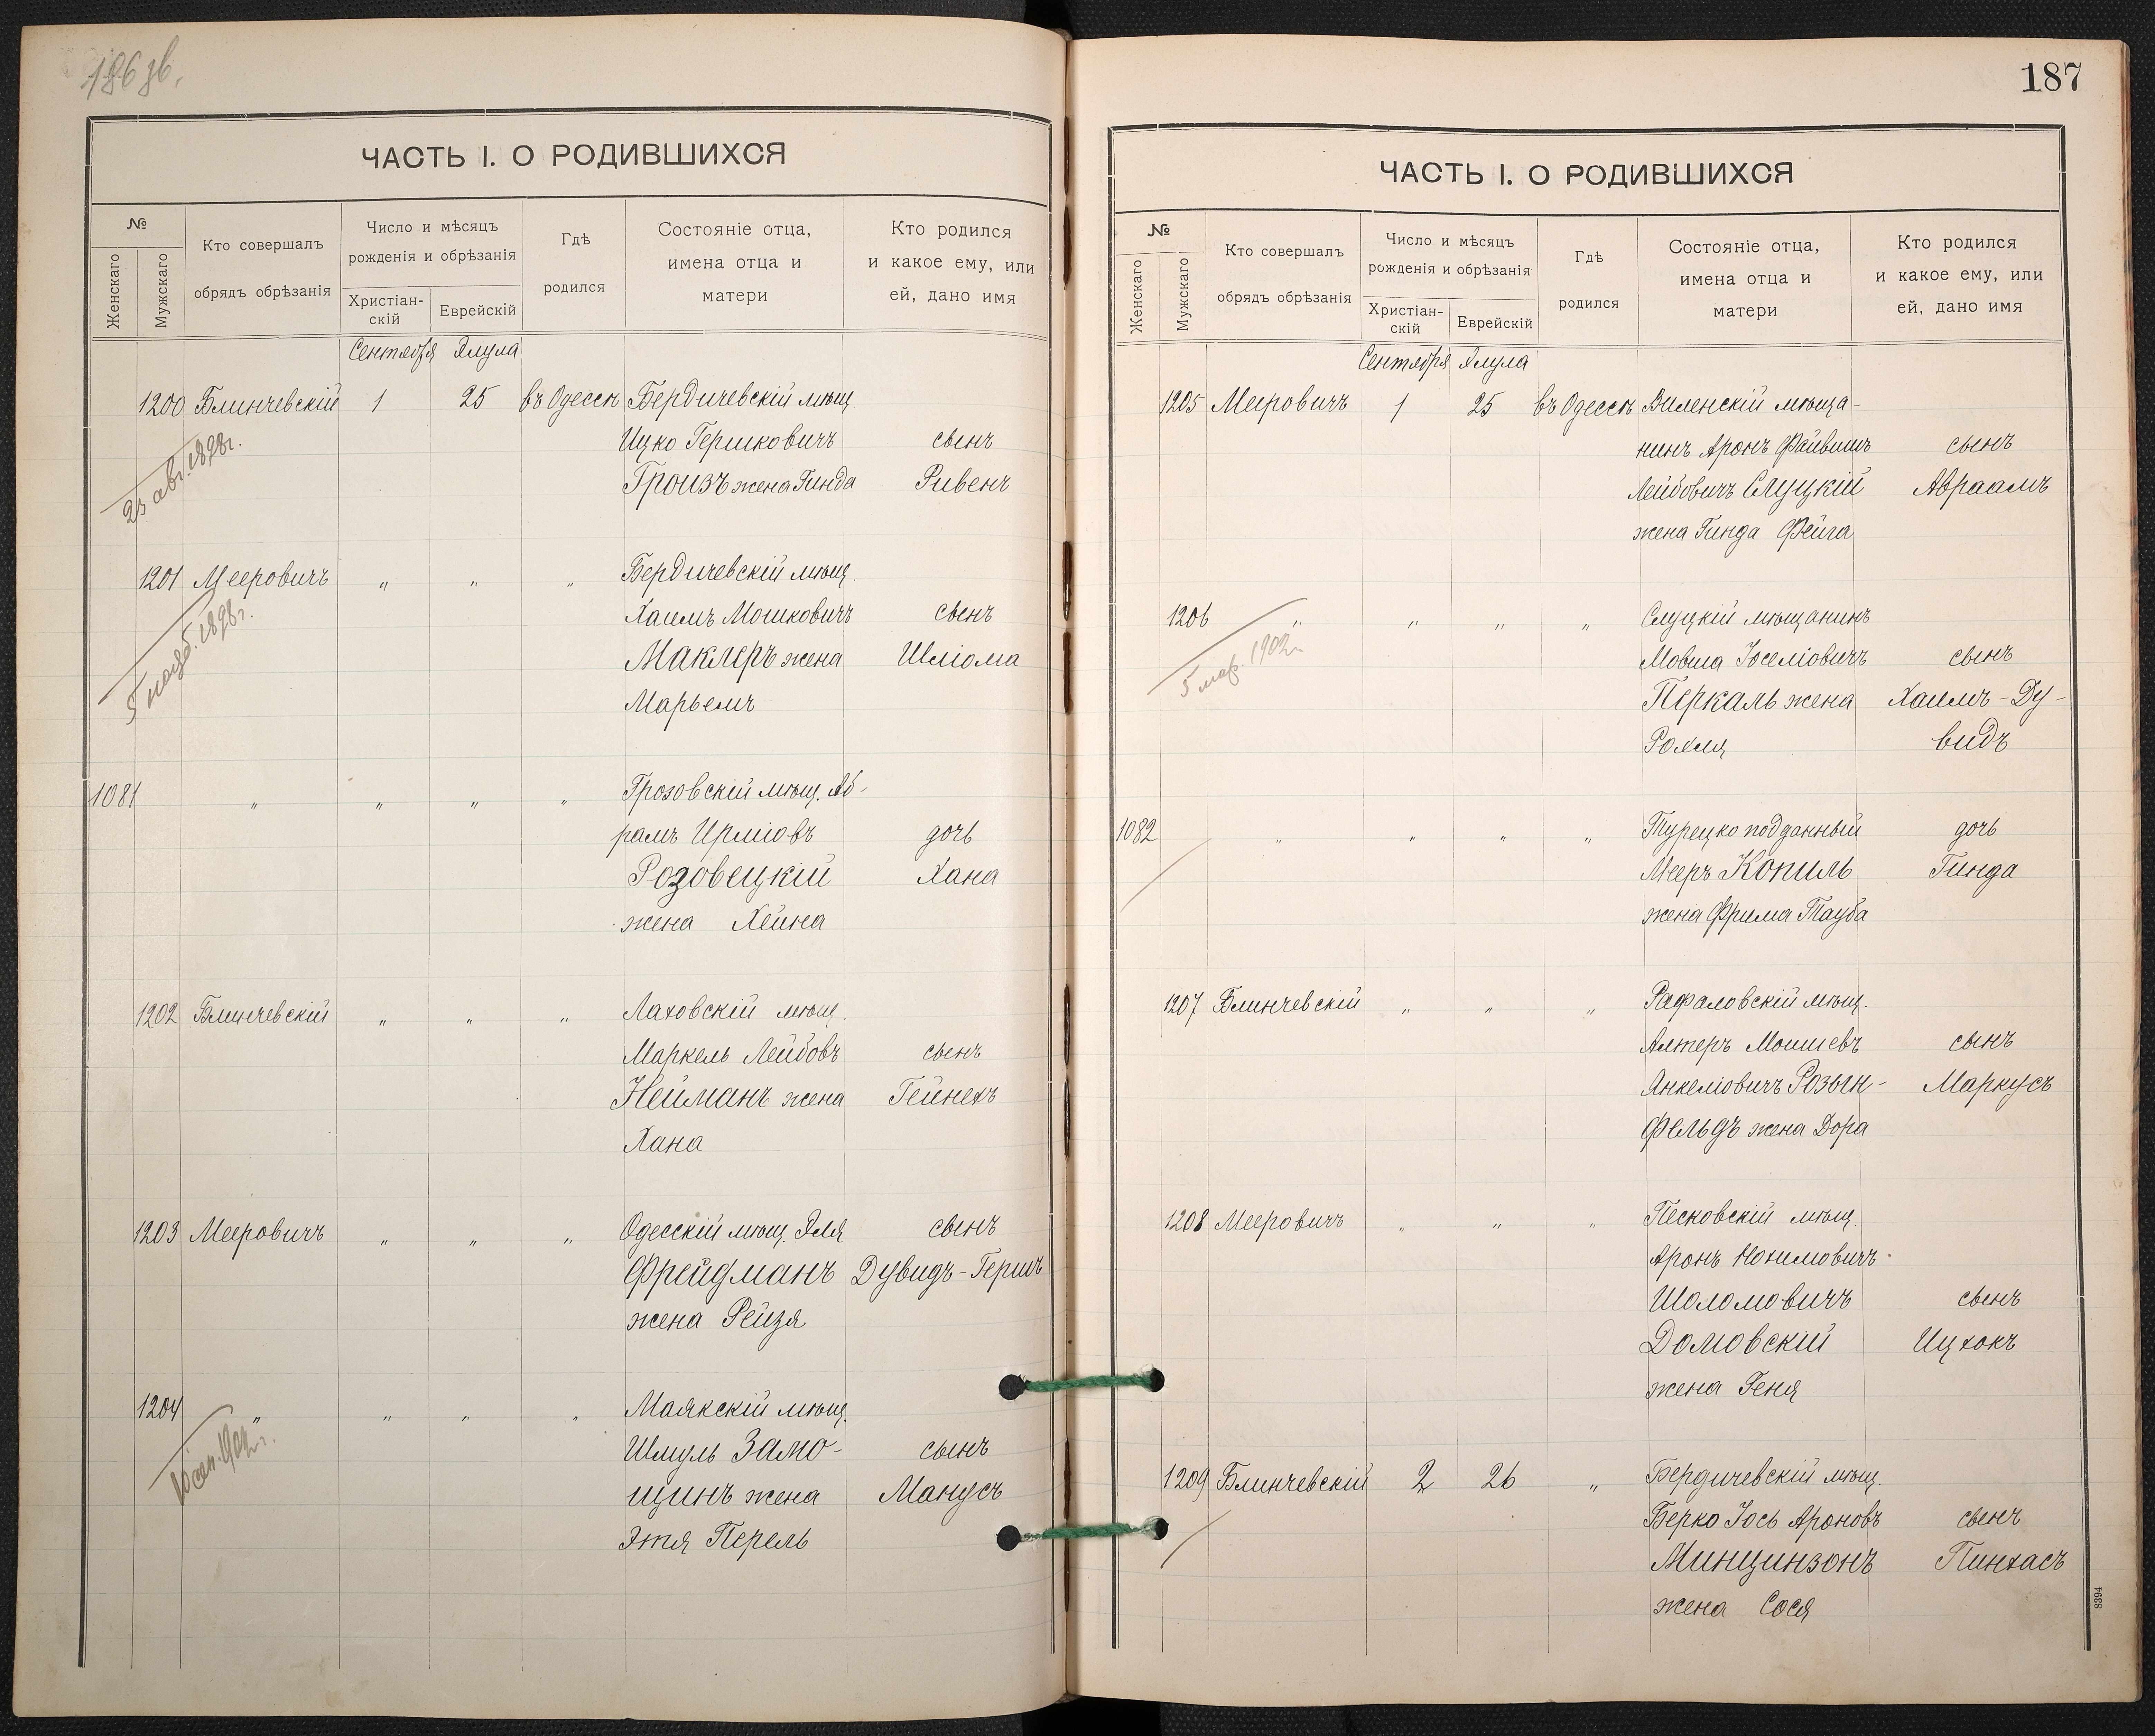 186 об.
ЧАСТЬ I. О РОДИВШИХСЯ
№
Женскаго
Мужскаго
Кто совершалъ
обрядъ обрѣзанія
Число и мѣсяцъ
рожденія и обрѣзанія
Христіан-
скій
Еврейскій
Гдѣ
родился
Состояніе отца,
имена отца и
матери
Кто родился
и какое ему, или
ей, дано имя
Сентября Элула
1200 Блинчевскій 1 25 въ Одессѣ Бердичевскій мѣщ.
Ицко Гершковичъ сынъ
Гроизъ жена Гинда Ривенъ
23 авг. 1898г.
1201 Мееровичъ " " " Бердичевскій мѣщ.
Хаимъ Мошковичъ сынъ
Маклеръ жена Шліома
Марьемъ
5 нояб. 1898г.
1081 " " " " Грозовскій мѣщ. Аб-
рамъ Ирміовъ дочь
Розовецкій Хана
жена Хейна
1202 Блинчевскій " " " Лаховскій мѣщ.
Маркель Лейбовъ сынъ
Нейманъ жена Гейнехъ
Хана
1203 Мееровичъ " " " Одесскій мѣщ. Эля сынъ
Фрейдманъ Дувидъ-Гершъ
жена Рейзя
1204 " " " " Маякскій мѣщ.
Шмуль Замо- сынъ
щинъ жена Манусъ
Этя Перель
10 сен. 1902г.
187
ЧАСТЬ I. О РОДИВШИХСЯ
№
Женскаго
Мужскаго
Кто совершалъ
обрядъ обрѣзанія
Число и мѣсяцъ
рожденія и обрѣзанія
Христіан-
скій
Еврейскій
Гдѣ
родился
Состояніе отца,
имена отца и
матери
Кто родился
и какое ему, или
ей, дано имя
Сентября Элула
1205 Мееровичъ 1 25 въ Одессѣ Виленскій мѣща-
нинъ Аронъ Файвишъ сынъ
Лейбовичъ Слуцкій Авраамъ
жена Гинда Фейга
1206 " " " " Слуцкій мѣщанинъ
Мовша Іоселіовичъ сынъ
Перкаль жена Хаимъ-Ду-
Рохля видъ
5 мар. 1902г.
1082 " " " " Турецко подданный дочь
Мееръ Копиль Гинда
жена Фрима Тауба
1207 Блинчевскій " " " Рафаловскій мѣщ.
Алтеръ Мошневъ сынъ
Янкеліовичъ Розын- Маркусъ
фельдъ жена Дора
1208 Мееровичъ " " " Песковскій мѣщ.
Аронъ Нохимовичъ
Шоломовичъ сынъ
Домовскій Ицхокъ
жена Геня
1209 Блинчевскій 2 26 " Бердичевскій мѣщ.
Берко Іось Ароновъ сынъ
Минцинзонъ Пинхасъ
жена Сося
8394